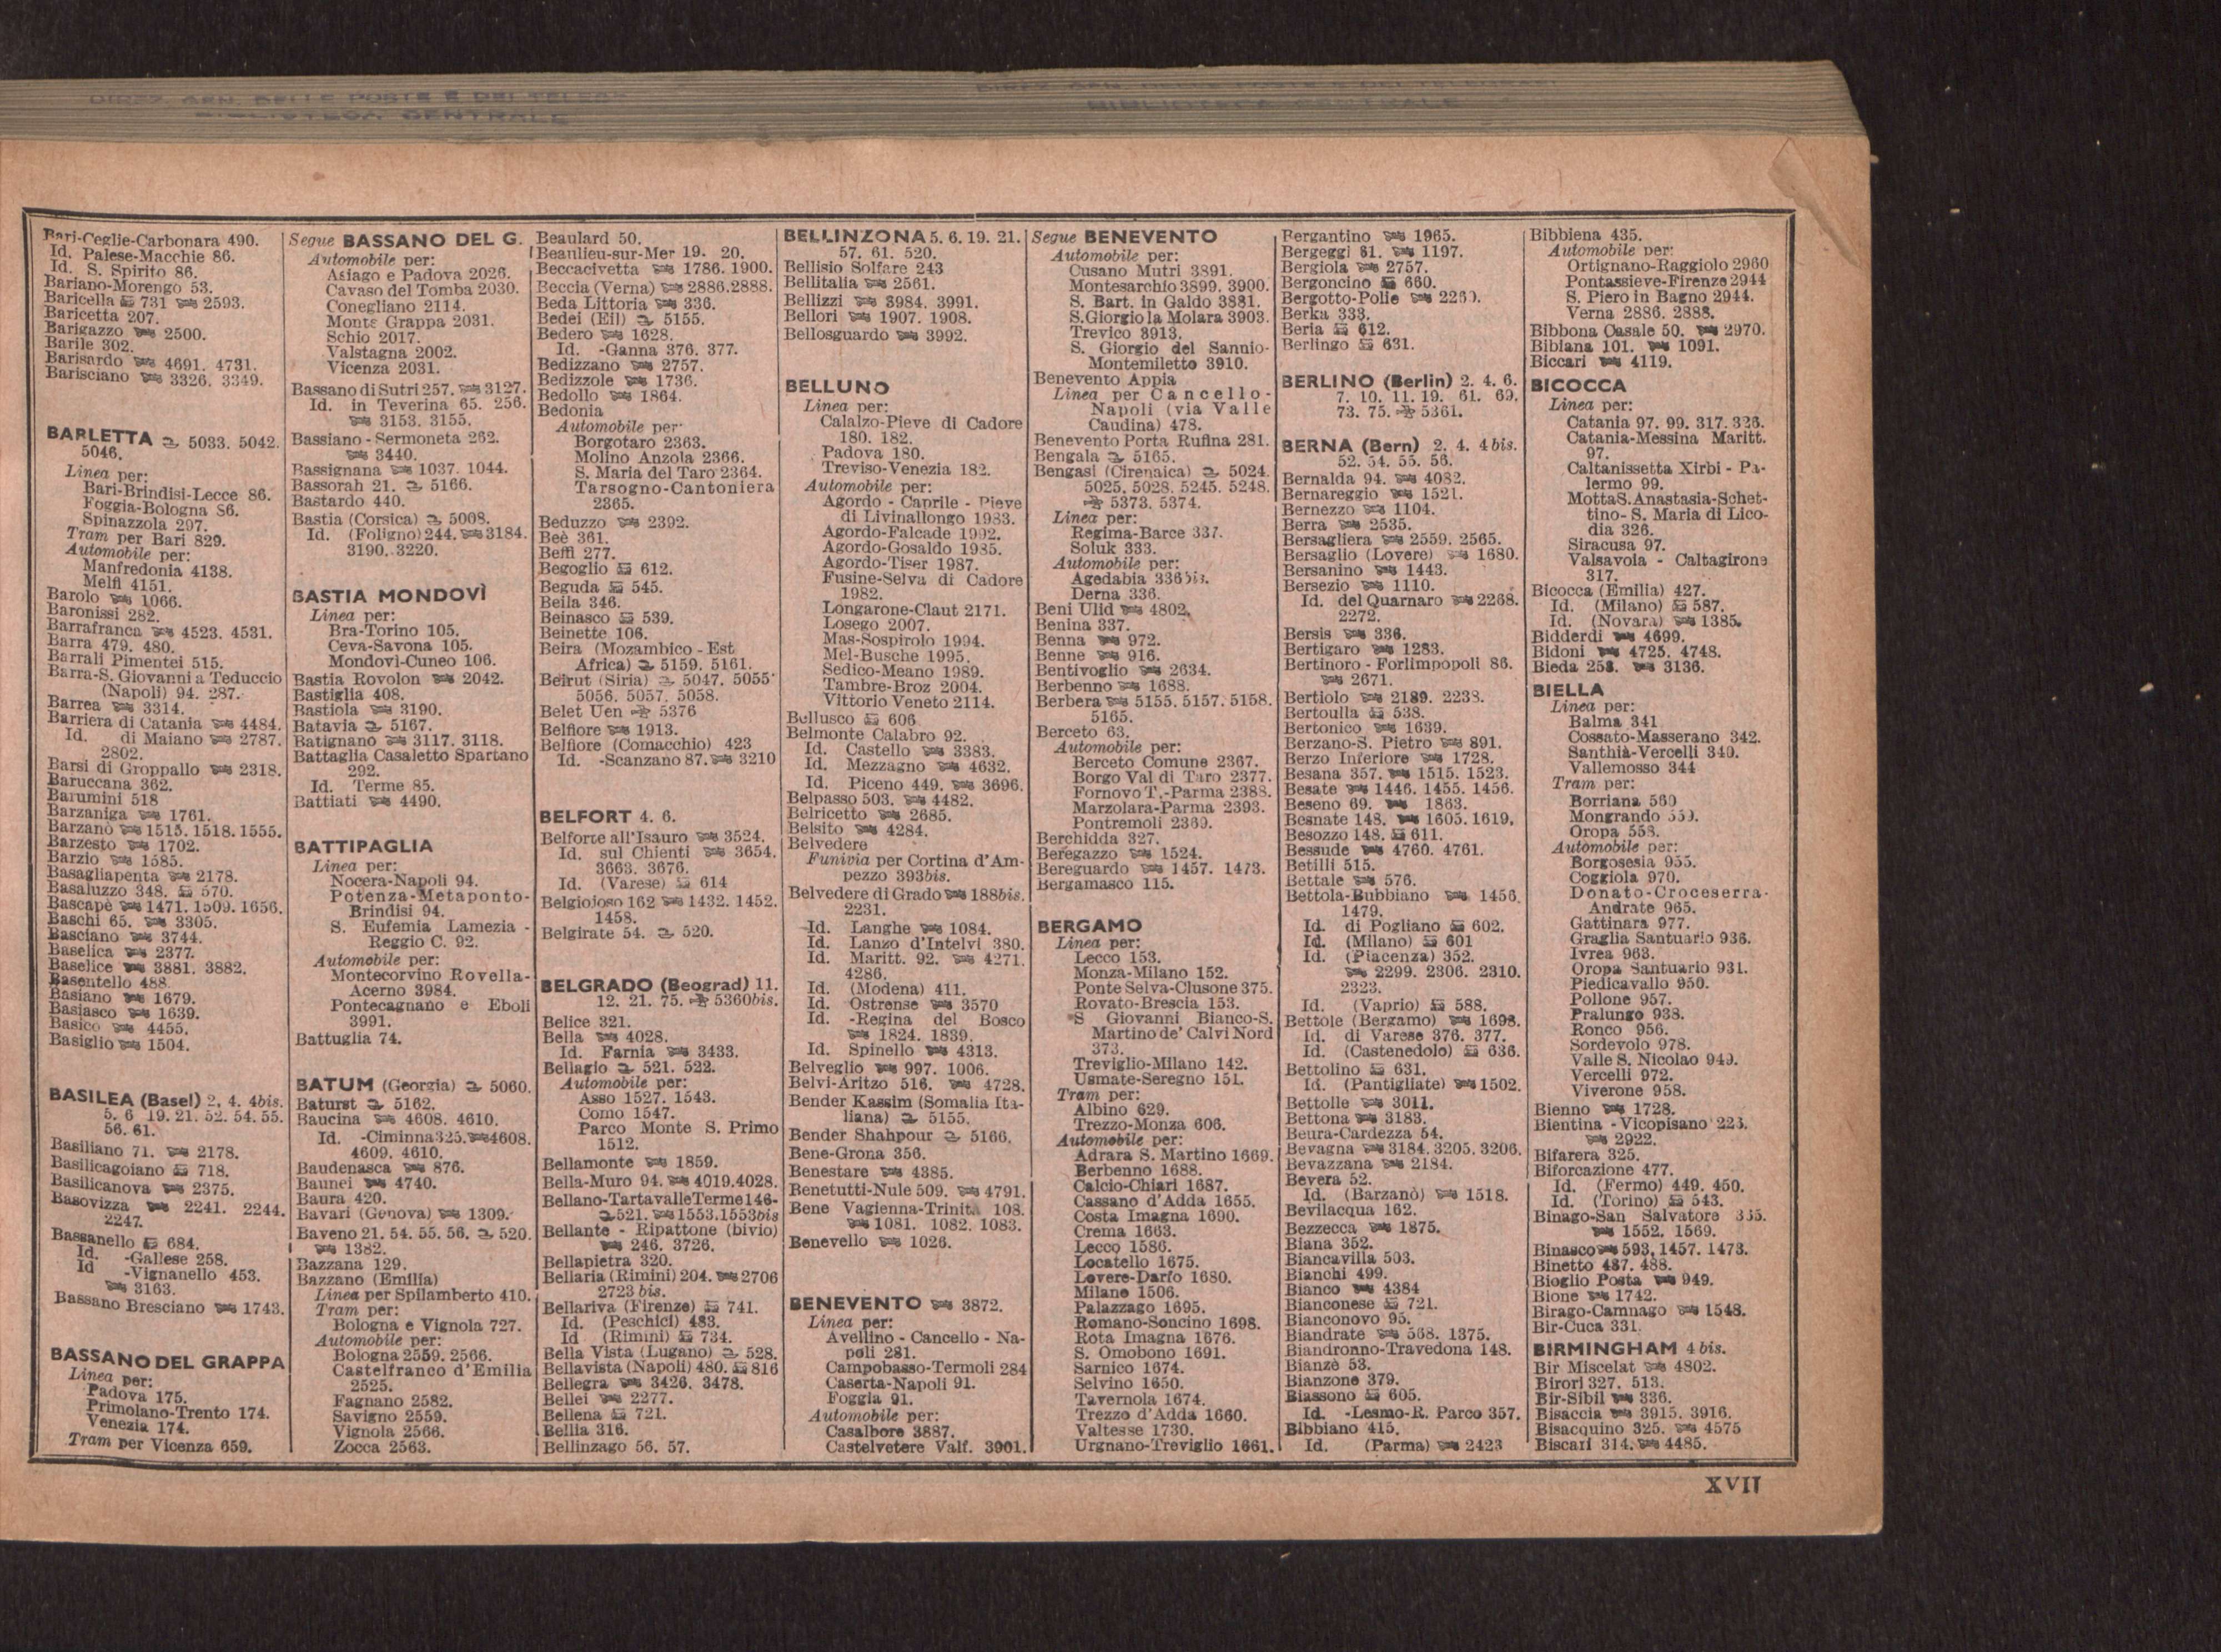 DIREZ. GEN. DELLE POSTE E DEI TELEG
BIBLIOTECA CENTRALE
BIBLIOTECA CENTRALE
Bari-Ceglie-Carbonara 490.
Id. Palese-Macchie 86.
Id. S. Spirito 86.
Bariano-Morengo 53.
Baricella 731 2593.
Baricetta 207.
Barigazzo 2500.
Barile 302.
Barisardo 4691. 4731.
Barisciano 3326. 3349.
BARLETTA 5033. 5042.
5046.
Linea per:
Bari-Brindisi-Lecce 86.
Foggia-Bologna 86.
Spinazzola 297.
Tram per Bari 829.
Automobile per:
Manfredonia 4138.
Melfi 4151.
Barolo 1066.
Baronissi 282.
Barrafranca 4523. 4531.
Barra 479. 480.
Barrali Pimentei 515.
Barra-S. Giovanni a Teduccio
(Napoli) 94. 287.
Barrea 3314.
Barriera di Catania 4484.
Id. di Maiano 2787.
2802.
Barsi di Groppallo 2318.
Baruccana 362.
Barumini 518
Barzaniga 1761.
Barzanò 1515. 1518. 1555.
Barzesto 1702.
Barzio 1585.
Basagliapenta 2178.
Basaluzzo 348. 570.
Bascapè 1471. 1509. 1656.
Baschi 65. 3305.
Basciano 3744.
Baselica 2377.
Baselice 3881. 3882.
Basentello 488.
Basiano 1679.
Basiasco 1639.
Basico 4455.
Basiglio 1504.
BASILEA (Basel) 2. 4. 4bis.
5. 6 19. 21. 52. 54. 55.
56. 61.
Basiliano 71. 2178.
Basilicagoiano 718.
Basilicanova 2375.
Basovizza 2241. 2244.
2247.
Bassanello 684.
Id. -Gallese 258.
Id -Vignanello 453.
3163.
Bassano Bresciano 1743.
BASSANO DEL GRAPPA
Linea per:
Padova 175.
Primolano-Trento 174.
Venezia 174.
Tram per Vicenza 659.
Segue BASSANO DEL G.
Automobile per:
Asiago e Padova 2026.
Cavaso del Tomba 2030.
Conegliano 2114.
Monte Grappa 2031.
Schio 2017.
Valstagna 2002.
Vicenza 2031.
Bassano di Sutri 257. 3127.
Id. in Teverina 65. 256.
3153. 3155.
Bassiano - Sermoneta 262.
3440.
Bassignana 1037. 1044.
Bassorah 21. 5166.
Bastardo 440.
Bastia (Corsica) 5008.
Id. (Foligno) 244. 3184.
3190. 3220.
BASTIA MONDOVÌ
Linea per:
Bra-Torino 105.
Ceva-Savona 105.
Mondovì-Cuneo 106.
Bastia Rovolon 2042.
Bastiglia 408.
Bastiola 3190.
Batavia 5167.
Batignano 3117. 3118.
Battaglia Casaletto Spartano
292.
Id. Terme 85.
Battiati 4490.
BATTIPAGLIA
Linea per:
Nocera-Napoli 94.
Potenza-Metaponto-
Brindisi 94.
S. Eufemia Lamezia -
Reggio C. 92.
Automobile per:
Montecorvino Rovella-
Acerno 3984.
Pontecagnano e Eboli
3991.
Battuglia 74.
BATUM (Georgia) 5060.
Baturst 5162.
Baucina 4608. 4610.
Id. -Ciminna 325. 4608.
4609. 4610.
Baudenasca 876.
Baunei 4740.
Baura 420.
Bavari (Genova) 1309.
Baveno 21. 54. 55. 56. 520.
1382.
Bazzana 129.
Bazzano (Emilia)
Linea per Spilamberto 410.
Tram per:
Bologna e Vignola 727.
Automobile per:
Bologna 2559. 2566.
Castelfranco d'Emilia
2525.
Fagnano 2582.
Savigno 2559.
Vignola 2566.
Zocca 2563.
Beaulard 50.
Beaulieu-sur-Mer 19. 20.
Beccacivetta 1786. 1900.
Beccia (Verna) 2886. 2888.
Beda Littoria 336.
Bedei (Eil) 5155.
Bedero 1628.
Id. -Ganna 376. 377.
Bedizzano 2757.
Bedizzole 1736.
Bedollo 1864.
Bedonia
Automobile per
Borgotaro 2363.
Molino Anzola 2366.
S. Maria del Taro 2364.
Tarsogno-Cantoniera
2365.
Beduzzo 2392.
Beè 361.
Beffi 277.
Begoglio 612.
Beguda 545.
Beila 346.
Beinasco 539.
Beinette 106.
Beira (Mozambico - Est
Africa) 5159. 5161.
Beirut (Siria) 5047. 5055
5056. 5057. 5058.
Belet Uen 5376
Belfiore 1913.
Belfiore (Comacchio) 423
Id. -Scanzano 87. 3210
BELFORT 4. 6.
Belforte all'Isauro 3524.
Id. sul Chienti 3654.
3663. 3676.
Id. (Varese) 614
Belgiojoso 162 1432. 1452.
1458.
Belgirate 54. 520.
BELGRADO (Beograd) 11.
12. 21. 75. 5360bis.
Belice 321.
Bella 4028.
Id. Farnia 3433.
Bellagio 521. 522.
Automobile per:
Asso 1527. 1543.
Como 1547.
Parco Monte S. Primo
1512.
Bellamonte 1859.
Bella-Muro 94. 4019. 4028.
Bellano-Tartavalle Terme 146-
521. 1553. 1553bis
Bellante - Ripattone (bivio)
246. 3726.
Bellapietra 320.
Bellaria (Rimini) 204. 2706
2723 bis.
Bellariva (Firenze) 741.
Id. (Peschici) 483.
Id (Rimini) 734.
Bella Vista (Lugano) 528.
Bellavista (Napoli) 480. 816
Bellegra 3426. 3478.
Bellei 2277.
Bellena 721.
Bellia 316.
Bellinzago 56. 57.
BELLINZONA 5. 6. 19. 21.
57. 61. 520.
Bellisio Solfare 243
Bellitalia 2561.
Bellizzi 3984. 3991.
Bellori 1907. 1908.
Bellosguardo 3992.
BELLUNO
Linea per:
Calalzo-Pieve di Cadore
180. 182.
Padova 180.
Treviso-Venezia 182.
Automobile per:
Agordo - Caprile - Pieve
di Livinallongo 1983.
Agordo-Falcade 1992.
Agordo-Gosaldo 1985.
Agordo-Tiser 1987.
Fusine-Selva di Cadore
1982.
Longarone-Claut 2171.
Losego 2007.
Mas-Sospirolo 1994.
Mel-Busche 1995.
Sedico-Meano 1989.
Tambre-Broz 2004.
Vittorio Veneto 2114.
Bellusco 606.
Belmonte Calabro 92.
Id. Castello 3383.
Id. Mezzagno 4632.
Id. Piceno 449. 3696.
Belpasso 503. 4482.
Belricetto 2685.
Belsito 4284.
Belvedere
Funivia per Cortina d'Am-
pezzo 393bis.
Belvedere di Grado 188bis.
2231.
Id. Langhe 1084.
Id. Lanzo d'Intelvi 380.
Id. Maritt. 92. 4271.
4286.
Id. (Modena) 411.
Id. Ostrense 3570
Id. -Regina del Bosco
1824. 1839.
Id. Spinello 4313.
Belveglio 997. 1006.
Belvi-Aritzo 516. 4728.
Bender Kassim (Somalia Ita-
liana) 5155.
Bender Shahpour 5166.
Bene-Grona 356.
Benestare 4385.
Benetutti-Nule 509. 4791.
Bene Vagienna-Trinità 108.
1081. 1082. 1083.
Benevello 1026.
BENEVENTO 3872.
Linea per:
Avellino - Cancello - Na-
poli 281.
Campobasso-Termoli 284
Caserta-Napoli 91.
Foggia 91.
Automobile per:
Casalbore 3887.
Castelvetere Valf. 3901.
Segue BENEVENTO
Automobile per:
Cusano Mutri 3891.
Montesarchio 3899. 3900.
S. Bart. in Galdo 3881.
S. Giorgio la Molara 3903.
Trevico 3913.
S. Giorgio del Sannio-
Montemiletto 3910.
Benevento Appia
Linea per Cancello-
Napoli (via Valle
Caudina) 478.
Benevento Porta Rufina 281.
Bengala 5165.
Bengasi (Cirenaica) 5024.
5025. 5028. 5245. 5248.
5373. 5374.
Linea per:
Regima-Barce 337.
Soluk 333.
Automobile per:
Agedabia 336bis.
Derna 336.
Beni Ulid 4802.
Benina 337.
Benna 972.
Benne 916.
Bentivoglio 2634.
Berbenno 1688.
Berbera 5155. 5157. 5158.
5165.
Berceto 63.
Automobile per:
Berceto Comune 2367.
Borgo Val di Taro 2377.
Fornovo T.-Parma 2388.
Marzolara-Parma 2393.
Pontremoli 2369.
Berchidda 327.
Beregazzo 1524.
Bereguardo 1457. 1473.
Bergamasco 115.
BERGAMO
Linea per:
Lecco 153.
Monza-Milano 152.
Ponte Selva-Clusone 375.
Rovato-Brescia 153.
S Giovanni Bianco-S.
Martino de' Calvi Nord
373.
Treviglio-Milano 142.
Usmate-Seregno 151.
Tram per:
Albino 629.
Trezzo-Monza 606.
Automobile per:
Adrara S. Martino 1669.
Berbenno 1688.
Calcio-Chiari 1687.
Cassano d'Adda 1655.
Costa Imagna 1690.
Crema 1663.
Lecco 1586.
Locatello 1675.
Lovere-Darfo 1680.
Milano 1506.
Palazzago 1695.
Romano-Soncino 1698.
Rota Imagna 1676.
S. Omobono 1691.
Sarnico 1674.
Selvino 1650.
Tavernola 1674.
Trezzo d'Adda 1660.
Valtesse 1730.
Urgnano-Treviglio 1661.
Pergantino 1965.
Bergeggi 81. 1197.
Bergiola 2757.
Bergoncino 660.
Bergotto-Polie
Berka 333.
Beria 612.
Berlingo 631.
BERLINO (Berlin) 2. 4. 6.
7. 10. 11. 19. 61. 69.
73. 75. 5361.
BERNA (Bern) 2. 4. 4bis.
52. 54. 55. 56.
Bernalda 94. 4082.
Bernareggio 1521.
Bernezzo 1104.
Berra 2535.
Bersagliera 2559. 2565.
Bersaglio (Lovere) 1680.
Bersanino 1443.
Bersezio 1110.
Id. del Quarnaro 2268.
2272.
Bersis 336.
Bertigaro 1283.
Bertinoro - Forlimpopoli 86.
2671.
Bertiolo 2189. 2238.
Bertoulla 538.
Bertonico 1639.
Berzano-S. Pietro 891.
Berzo Inferiore 1728.
Besana 357. 1515. 1523.
Besate 1446. 1455. 1456.
Beseno 69. 1863.
Besnate 148. 1605. 1619.
Besozzo 148. 611.
Bessude 4760. 4761.
Betilli 515.
Bettale 576.
Bettola-Bubbiano 1456.
1479.
Id. di Pogliano 602.
Id. (Milano) 601
Id. (Piacenza) 352.
2299. 2306. 2310.
2323.
Id. (Vaprio) 588.
Bettole (Bergamo) 1698.
Id. di Varese 376. 377.
Id. (Castenedolo) 636.
Bettolino 631.
Id. (Pantigliate) 1502.
Bettolle 3011.
Bettona 3183.
Beura-Cardezza 54.
Bevagna 3184. 3205. 3206.
Bevazzana 2184.
Bevera 52.
Id. (Barzanò) 1518.
Bevilacqua 162.
Bezzecca 1875.
Biana 352.
Biancavilla 503.
Bianchi 499.
Bianco 4384
Bianconese 721.
Bianconovo 95.
Biandrate 568. 1375.
Biandronno-Travedona 148.
Bianzè 53.
Bianzone 379.
Biassono 605.
Id. -Lesmo-R. Parco 357.
Bibbiano 415.
Id. (Parma) 2423
Bibbiena 435.
Automobile per:
Ortignano-Raggiolo 2960
Pontassieve-Firenze 2944
S. Piero in Bagno 2944.
Verna 2886. 2888.
Bibbona Casale 50. 2970.
Bibiana 101. 1091.
Biccari 4119.
BICOCCA
Linea per:
Catania 97. 99. 317. 326.
Catania-Messina Maritt.
97.
Caltanissetta Xirbi - Pa-
lermo 99.
Motta S. Anastasia-Schet-
tino- S. Maria di Lico-
dia 326.
Siracusa 97.
Valsavoia - Caltagirone
317.
Bicocca (Emilia) 427.
Id. (Milano) 587.
Id. (Novara) 1385.
Bidderdi 4699.
Bidoni 4725. 4748.
Bieda 258. 3136.
BIELLA
Linea per:
Balma 341
Cossato-Masserano 342.
Santhià-Vercelli 340.
Vallemosso 344
Tram per:
Borriana 560
Mongrando 559.
Oropa 558.
Automobile per:
Borgosesia 955.
Coggiola 970.
Donato-Croceserra-
Andrate 965.
Gattinara 977.
Graglia Santuario 936.
Ivrea 963.
Oropa Santuario 931.
Piedicavallo 950.
Pollone 957.
Pralungo 938.
Ronco 956.
Sordevolo 978.
Valle S. Nicolao 949.
Vercelli 972.
Viverone 958.
Bienno 1728.
Bientina - Vicopisano 223.
2922.
Bifarera 325.
Biforcazione 477.
Id. (Fermo) 449. 450.
Id. (Torino) 543.
Binago-San Salvatore 355.
1552. 1569.
Binasco 593. 1457. 1473.
Binetto 487. 488.
Bioglio Posta 949.
Bione 1742.
Birago-Camnago 1548.
Bir-Cuca 331.
BIRMINGHAM 4 bis.
Bir Miscelat 4802.
Birori 327. 513.
Bir-Sibil 336.
Bisaccia 3915. 3916.
Bisacquino 325. 4575
Biscari 314. 4485.
XVII